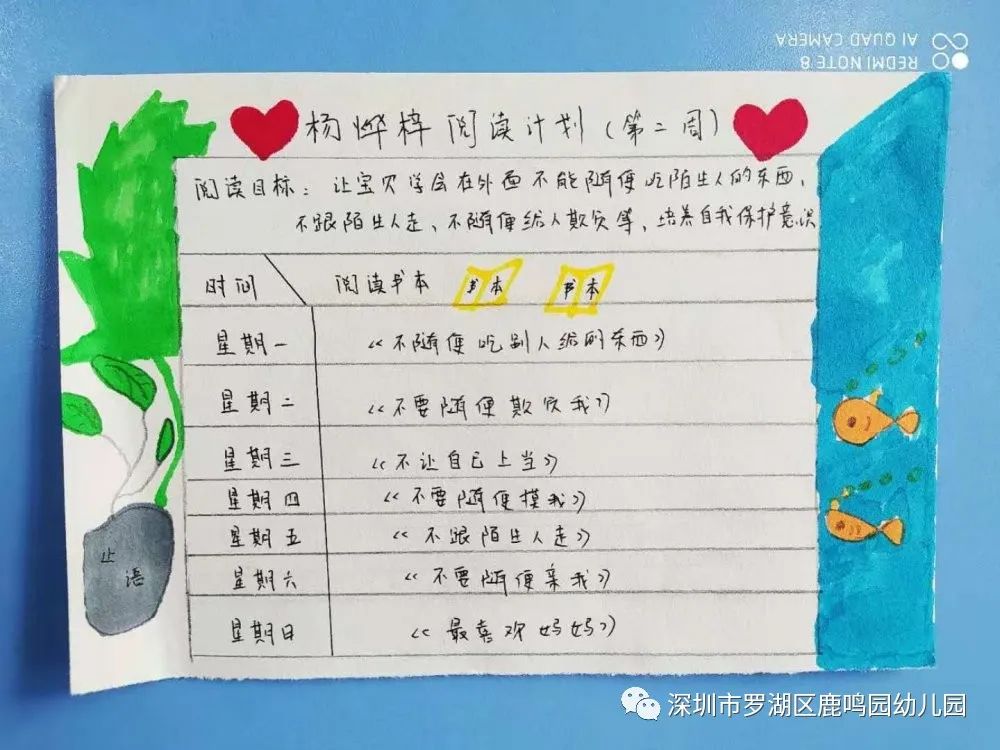 REDMI NOTE 8
AI QUAD CAMERA
杨烨梓阅读计划（第二周）
阅读目标：让宝贝学会在外面不能随便吃陌生人的东西，
不跟陌生人走、不随便给人欺负等，培养自我保护意识
时间 阅读书本 书本 书本
星期一 《不随便吃别人给的东西》
星期二 《不要随便欺负我》
星期三 《不让自己上当》
星期四 《不要随便摸我》
星期五 《不跟陌生人走》
星期六 《不要随便亲我》
星期日 《最喜欢妈妈》
语
深圳市罗湖区鹿鸣园幼儿园